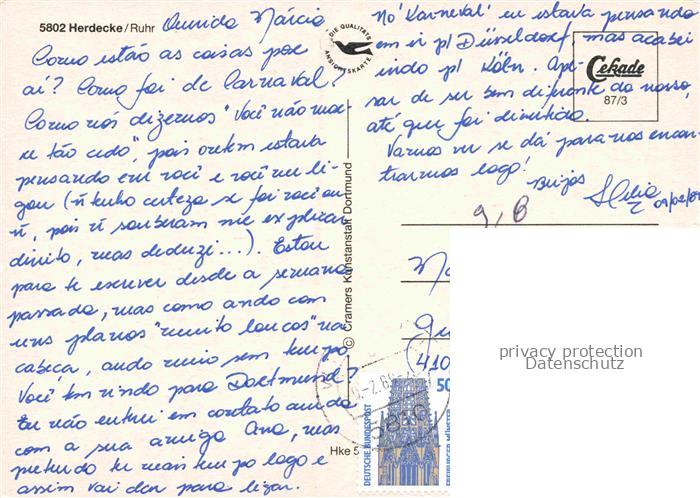 5802 Herdecke/Ruhr
Querida Márcia
Como estão as coisas por
aí? Como foi de Carnaval?
Como nós dizemos "Você não mor-
re tão cedo", pois ontem estava
pensando em você e você me li-
gou (ñ tenho certeza se foi você ou
ñ, pois ñ souberam me explicar
direito, mas deduzi...). Estou
para te escrever desde a semana
passada, mas como ando com
uns planos "muito loucos" na
cabeça, ando meio sem tempo
Você tem vindo para Dortmund?
Eu não entrei em contato ainda
com a sua amiga Ana, mas
pretendo ter mais tempo logo e
assim vai dar para ligar.
DIE QUALITÄTS
ANSICHTSKARTE
© Cramers Kunstanstalt Dortmund
Hke 5
No "Karneval" eu estava pensando
em ir p/ Düsseldorf mas acabei
indo p/ Köln. Ape-
sar de ser bem diferente do nosso,
até que foi divertido.
Vamos ver se dá para nos encon-
trarmos logo!
Beijos
Cekade
87/3
(410
privacy protection
Datenschutz
50
DEUTSCHE BUNDESPOST
FREIBURGER MÜNSTER